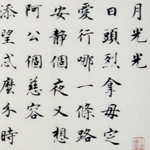 月光光
日頭烈拿毋定
愛行哪一條路
安靜個夜又想
阿公個慈容
添望忒麼介時